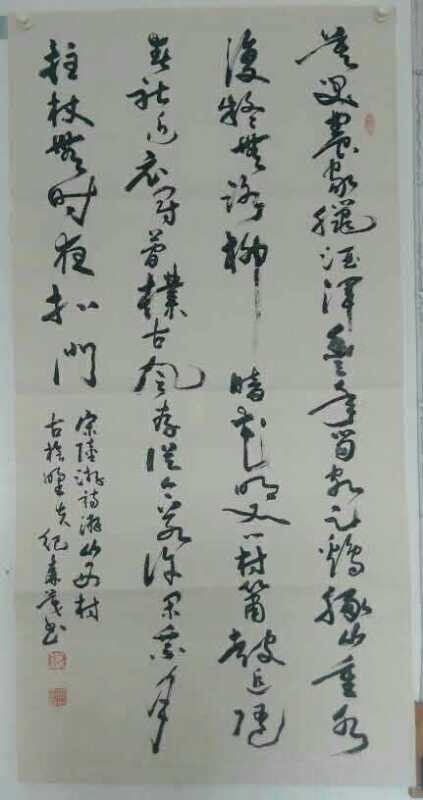 莫笑農家臘酒渾豐年留客足鷄豚山重水
復疑無路柳暗花明又一村簫鼓追隨
春社近衣冠簡樸古風存從今若許閑乘月
拄杖無時夜扣門
宋陸游詩游山西村
古野紀書